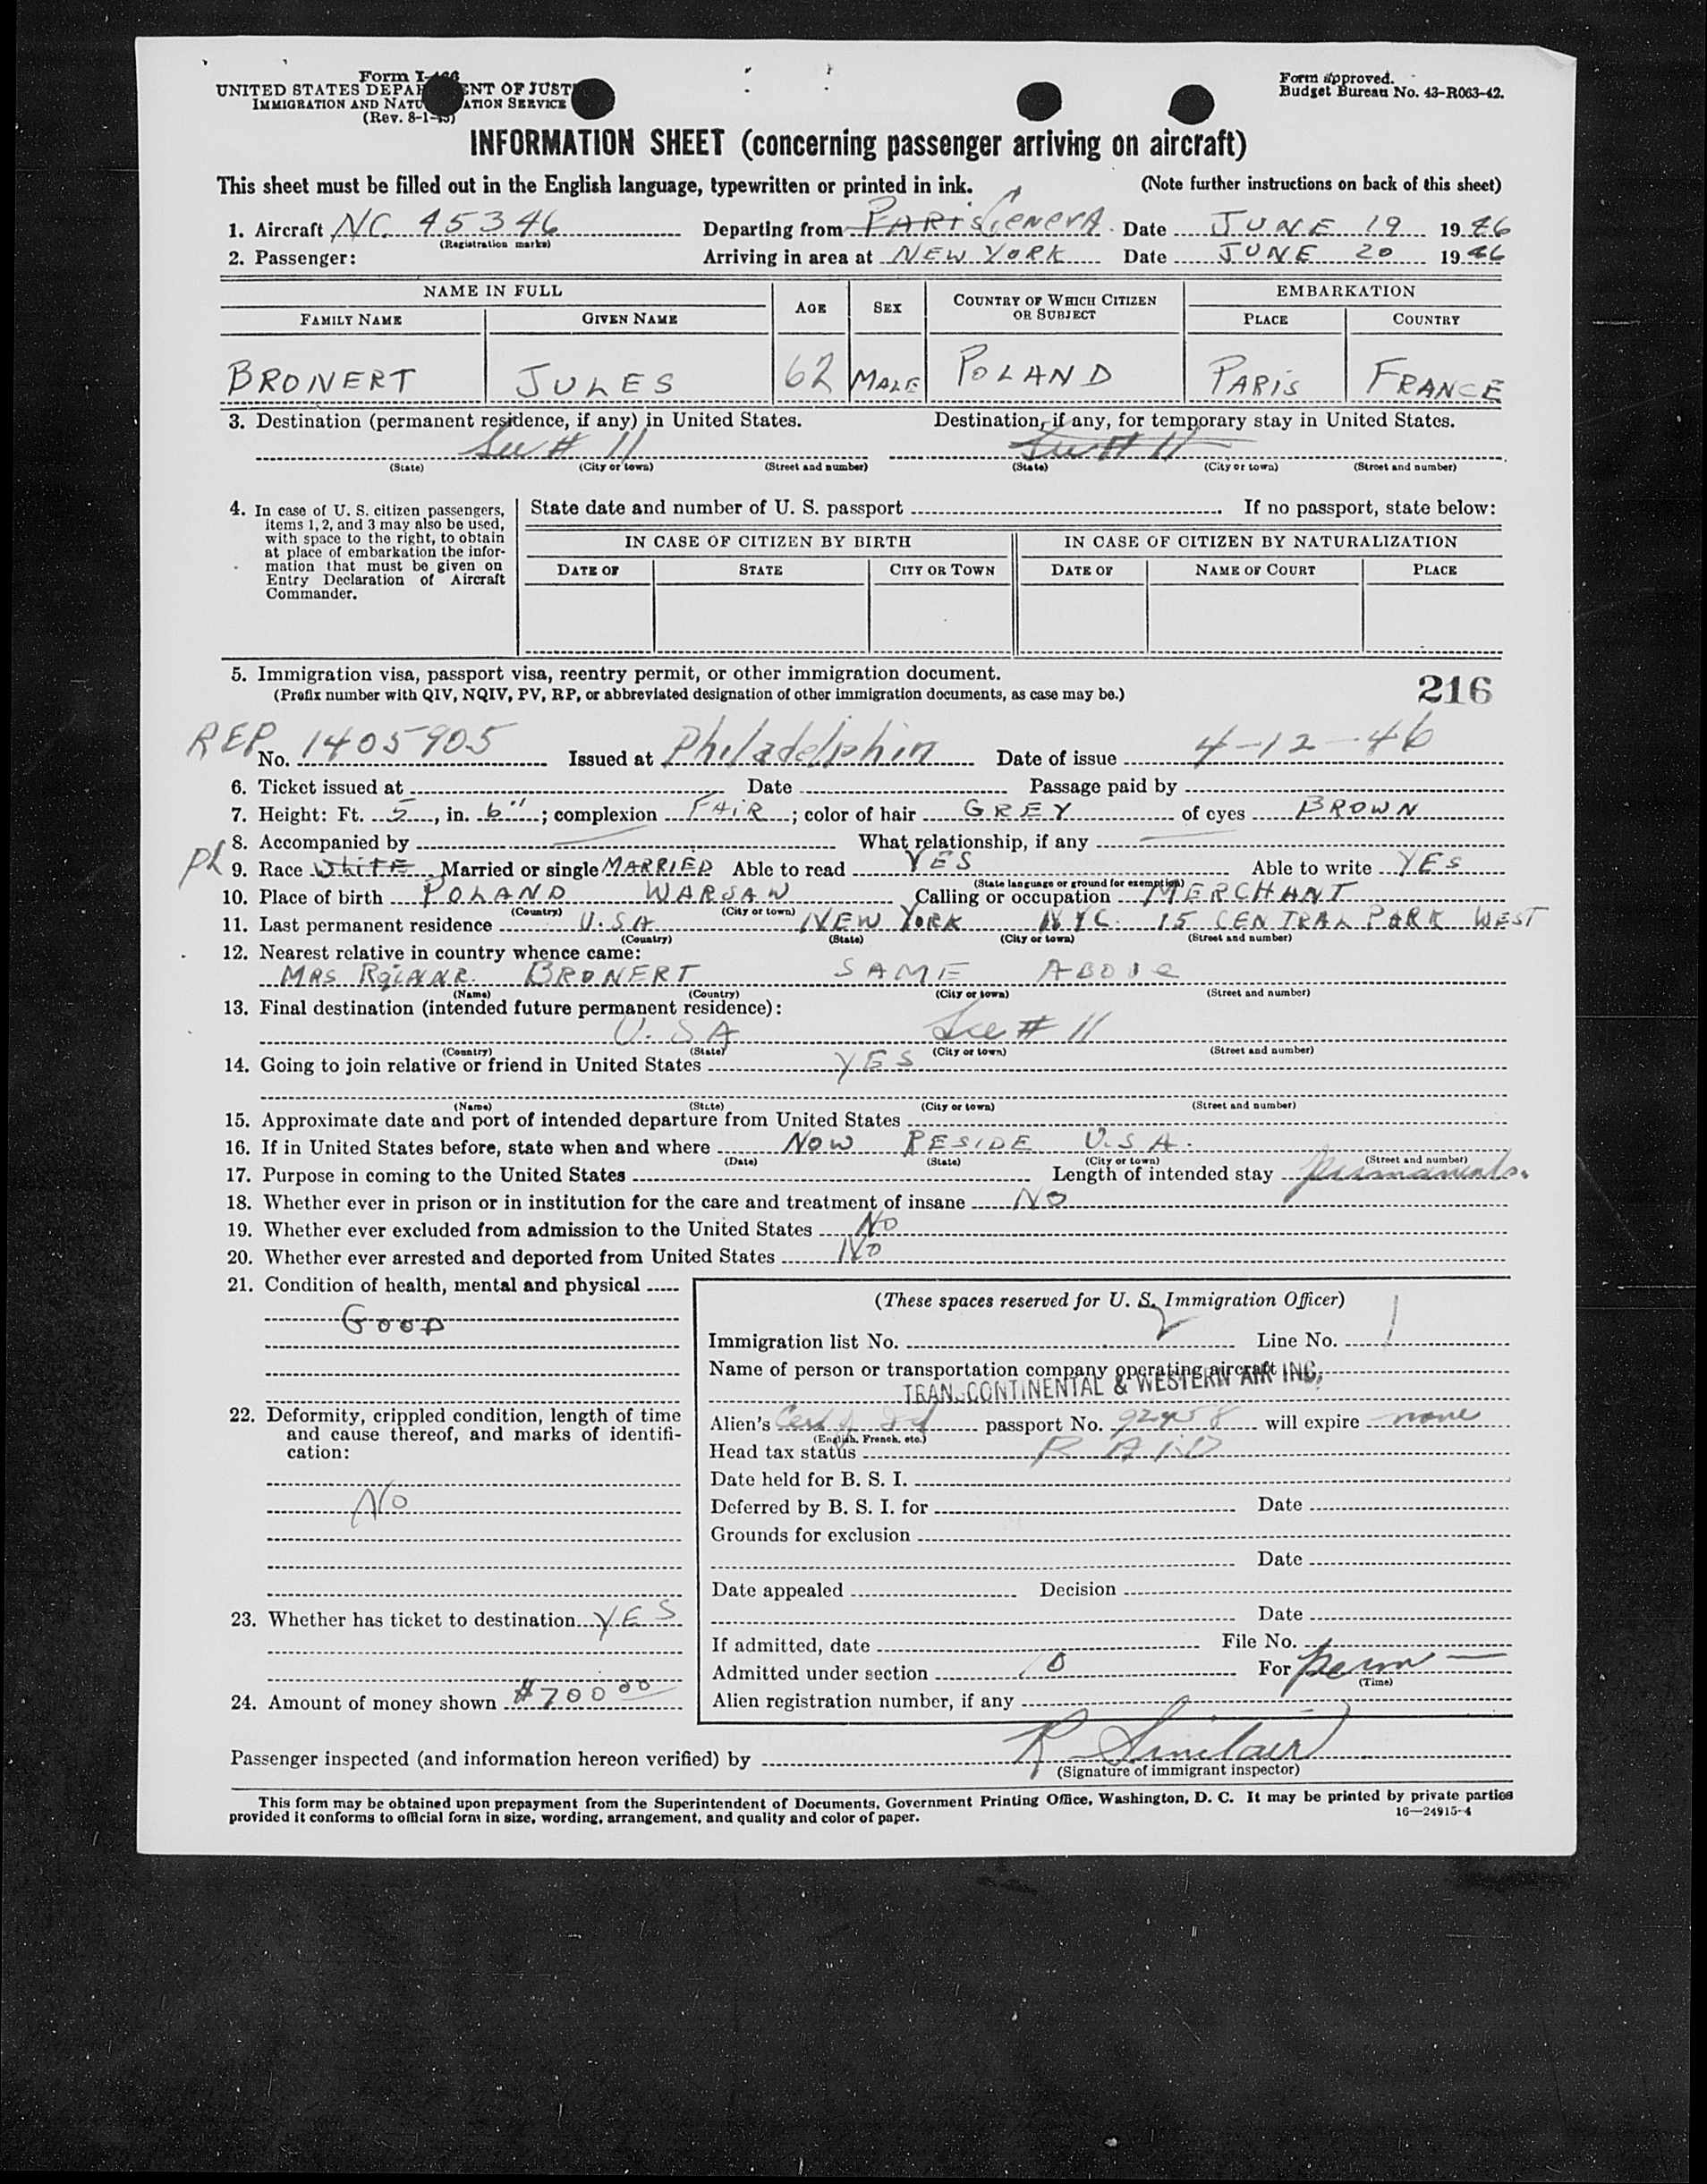 Form I-466
UNITED STATES DEPARTMENT OF JUSTICE
IMMIGRATION AND NATURALIZATION SERVICE
(Rev. 8-1-45)
Form approved.
Budget Bureau No. 43-R063-42.
INFORMATION SHEET (concerning passenger arriving on aircraft)
This sheet must be filled out in the English language, typewritten or printed in ink. (Note further instructions on back of this sheet)
1. Aircraft NC 45346 Departing from PARIS GENEVA Date JUNE 19 1946
(Registration marks)
2. Passenger: Arriving in area at NEW YORK Date JUNE 20 1946
NAME IN FULL AGE SEX COUNTRY OF WHICH CITIZEN OR SUBJECT EMBARKATION
FAMILY NAME GIVEN NAME PLACE COUNTRY
BRONERT JULES 62 MALE POLAND PARIS FRANCE
3. Destination (permanent residence, if any) in United States. Destination, if any, for temporary stay in United States.
See # 11 See # 11
(State) (City or town) (Street and number) (State) (City or town) (Street and number)
4. In case of U. S. citizen passengers, items 1, 2, and 3 may also be used, with space to the right, to obtain at place of embarkation the information that must be given on Entry Declaration of Aircraft Commander.
State date and number of U. S. passport If no passport, state below:
IN CASE OF CITIZEN BY BIRTH IN CASE OF CITIZEN BY NATURALIZATION
DATE OF STATE CITY OR TOWN DATE OF NAME OF COURT PLACE
5. Immigration visa, passport visa, reentry permit, or other immigration document.
(Prefix number with QIV, NQIV, PV, RP, or abbreviated designation of other immigration documents, as case may be.)
216
REP No. 1405905 Issued at Philadelphia Date of issue 4-12-46
6. Ticket issued at Date Passage paid by
7. Height: Ft. 5, in. 6"; complexion FAIR; color of hair GREY of eyes BROWN
8. Accompanied by What relationship, if any
9. Race WHITE Married or single MARRIED Able to read YES Able to write YES
(State language or ground for exemption)
10. Place of birth POLAND WARSAW Calling or occupation MERCHANT
(Country) (City or town)
11. Last permanent residence U.S.A NEW YORK NYC. 15 CENTRAL PARK WEST
(Country) (State) (City or town) (Street and number)
12. Nearest relative in country whence came:
MRS BRONERT SAME ABOVE
(Name) (Country) (City or town) (Street and number)
13. Final destination (intended future permanent residence):
U.SA See # 11
(Country) (State) (City or town) (Street and number)
14. Going to join relative or friend in United States YES
(Name) (State) (City or town) (Street and number)
15. Approximate date and port of intended departure from United States
16. If in United States before, state when and where NOW RESIDE U.S.A.
(Date) (State) (City or town) (Street and number)
17. Purpose in coming to the United States Length of intended stay
18. Whether ever in prison or in institution for the care and treatment of insane NO
19. Whether ever excluded from admission to the United States NO
20. Whether ever arrested and deported from United States NO
21. Condition of health, mental and physical
GOOD
(These spaces reserved for U. S. Immigration Officer)
Immigration list No. 2 Line No. 1
Name of person or transportation company operating aircraft
TRANSCONTINENTAL & WESTERN AIR INC.
22. Deformity, crippled condition, length of time and cause thereof, and marks of identification:
NO
Alien's passport No. will expire none
(English, French, etc.)
Head tax status
Date held for B. S. I.
Deferred by B. S. I. for Date
Grounds for exclusion
Date
Date appealed Decision
Date
23. Whether has ticket to destination YES
If admitted, date File No.
Admitted under section For perm
(Time)
24. Amount of money shown $700 00
Alien registration number, if any
Passenger inspected (and information hereon verified) by R Sinclair
(Signature of immigrant inspector)
This form may be obtained upon prepayment from the Superintendent of Documents, Government Printing Office, Washington, D. C. It may be printed by private parties
provided it conforms to official form in size, wording, arrangement, and quality and color of paper.
16—24915-4